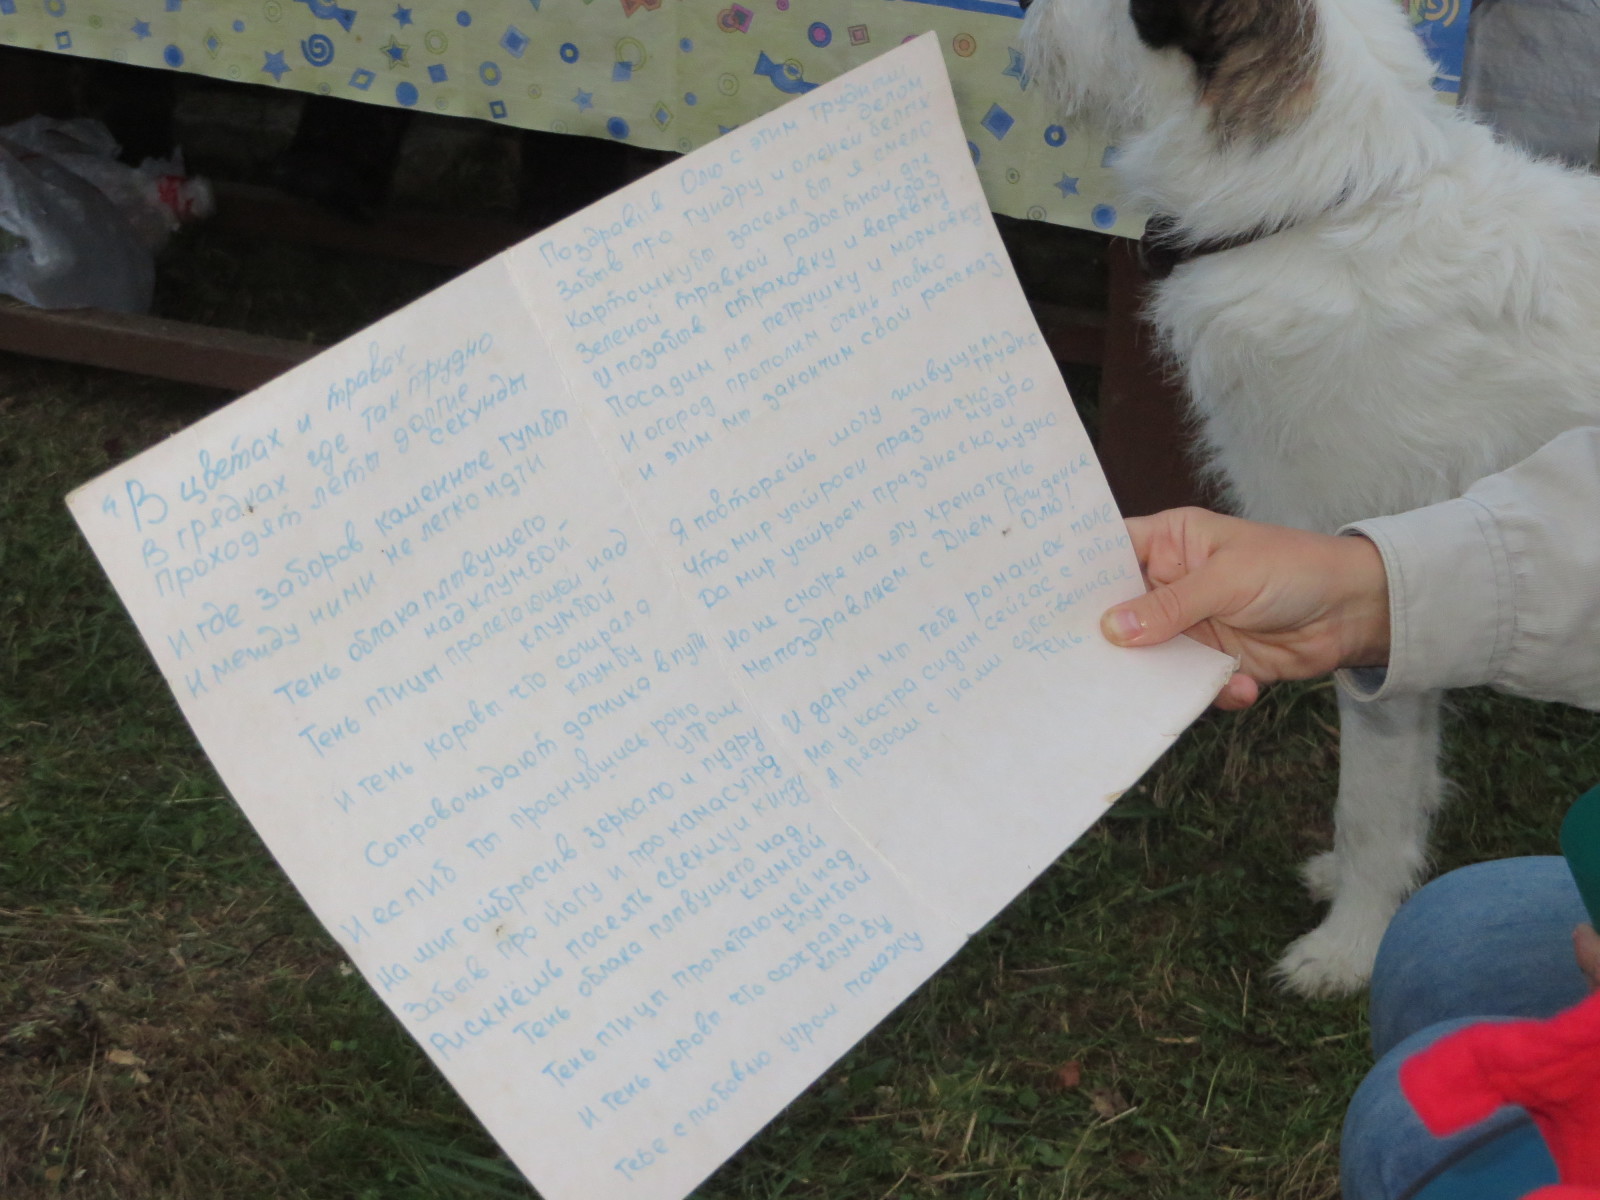 "В цветах и травах
В грядках где так трудно
Проходят леты долгие
секунды
И где заборов каменные тумбы
И между ними не легко идти
Тень облака плпвущего
над клумбой
Тень птицы пролетающей над
клумбой
И тень коровы что сожрала
клумбу
Сопровождают дачника в пути
И еслиб ты проснувшись рано
утром
На миг отбросив зеркало и пудру
Забыв про йогу и про камасутру
Рискнёшь посеять свеклу и кинзу
Тень облака плпвущего над
клумбой
Тень птицп пролетающей над
клумбой
И тень коровп что сожрала
клумбу
Тебе с любовью утром покажу
Поздравив Олю с этим трудным
делом
Забыв про тундру и оленей белпх
Картошкубы засеял бы я смело
Зеленой травкой радостной для
глаз
И позабыв страховку и верёвку
Посадим мп петрушку и морковку
И огород прополим очень ловко
И этим мп закончим свой рассказ
Я повторять могу живущим
трудно
Что мир устроен празднично и
мудро
Да мир устроен празднеско и
нудно
Но не смотря на эту хренатень
Мы поздравляем с Днём Рожденье
Олю!
И дарим мп тебе ромашек поле
Мы у костра сидим сейчас с тобою
А рядом с нами собственная
тень.